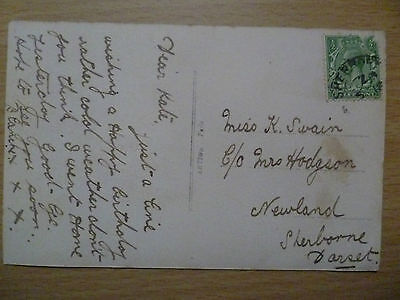 Dear Kate,
Just a line
wishing a Happy birthday
rather cold weather don't
you think. I went Home
yesterday Good-Bye.
Hope to see you soon.
x x
Miss K. Swain
C/o Mrs Hodgson
Newland
Sherborne
Dorset.